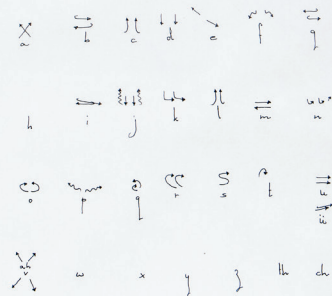 a b c d e f g
h i j k l m n
o p q r s t u
ü
v w x y z th ch